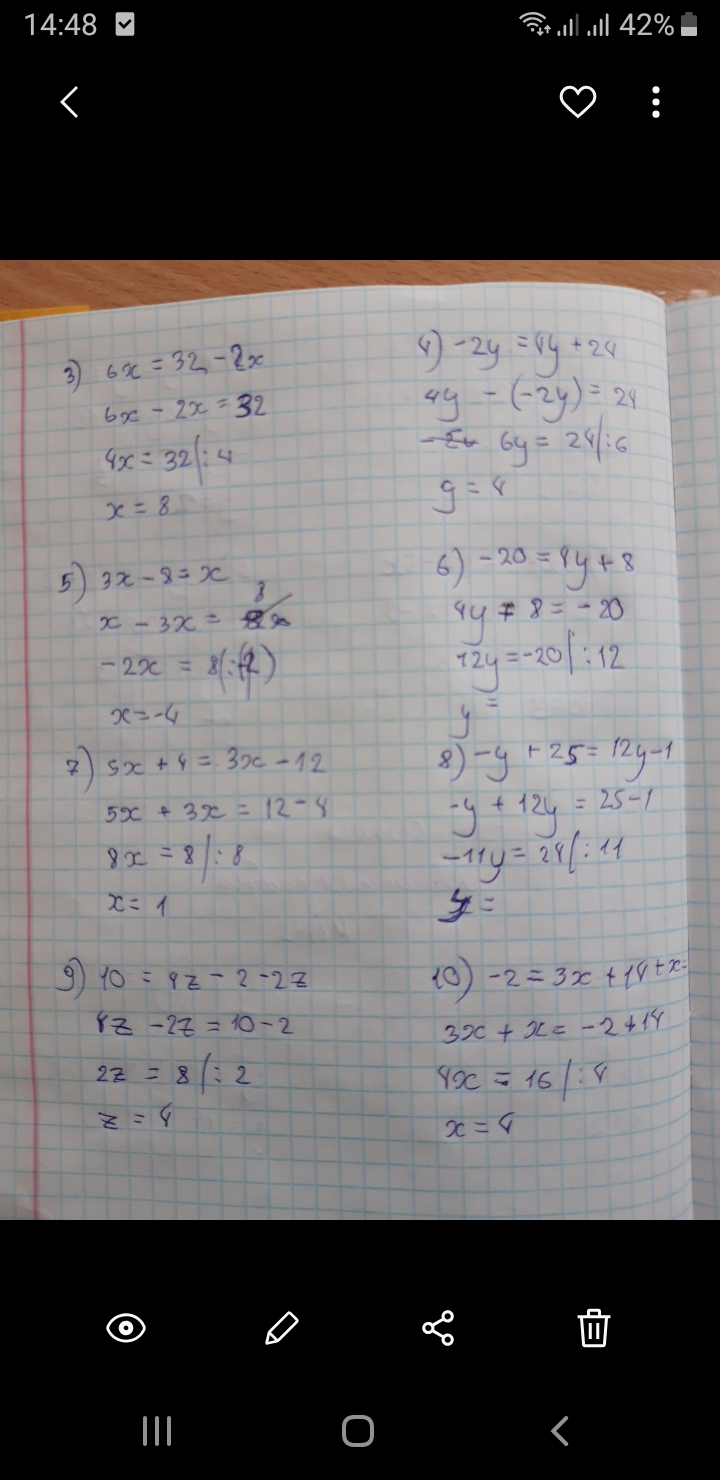 14:48
42%
3) 6x = 32 - 2x
6x - 2x = 32
4x = 32 /: 4
x = 8
4) -2y = 4y + 24
4y - (-2y) = 24
6y = 24 /: 6
y = 4
5) 3x - 8 = x
x - 3x = 8
-2x = 8 /: (-2)
x = -4
6) -20 = 4y + 8
4y + 8 = -20
12y = -20 /: 12
y =
7) 5x + 4 = 3x - 12
5x + 3x = 12 - 4
8x = 8 /: 8
x = 1
8) -y + 25 = 12y - 1
-y + 12y = 25 - 1
-11y = 24 /: 11
y =
9) 10 = 4z - 2 - 2z
4z - 2z = 10 - 2
2z = 8 /: 2
z = 4
10) -2 = 3x + 14 + x =
3x + x = -2 + 14
4x = 16 /: 4
x = 4